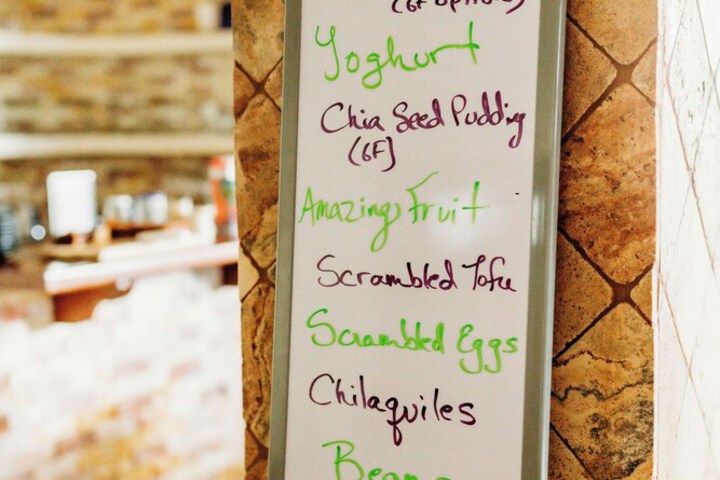 (GF options)
Yoghurt
Chia Seed Pudding
(GF)
Amazing Fruit
Scrambled Tofu
Scrambled Eggs
Chilaquiles